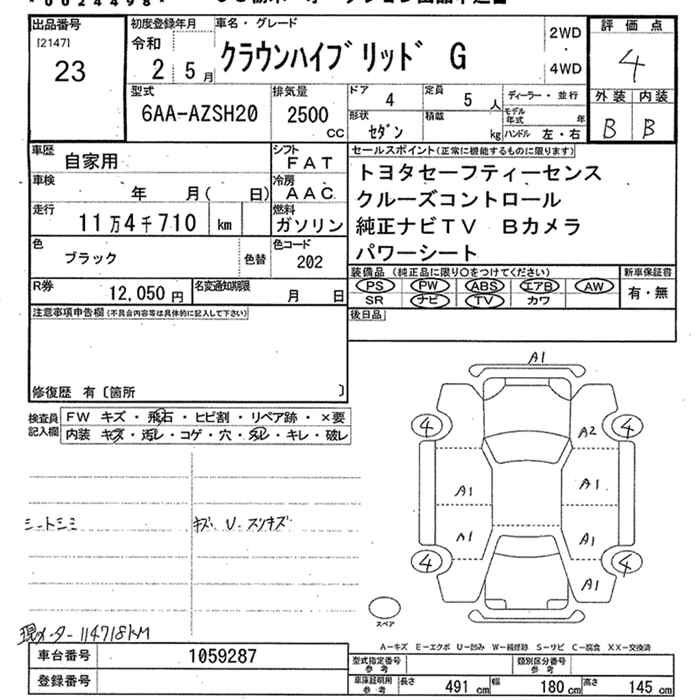 *0024498*
出品番号
[2147]
23
初度登録年月
令和
2 5月
車名・グレード
クラウンハイブリッド G
2WD
4WD
評価点
4
外装 内装
B B
型式
6AA-AZSH20
排気量
2500
cc
ドア
4
定員
5 人
形状
セダン
積載
kg
ディーラー・並行
モデル年式 年
ハンドル 左・右
車歴 自家用
シフト
FAT
車検 年 月( 日)
冷房
AAC
走行 11万4千710 km
燃料
ガソリン
色
ブラック
色替
色コード
202
R券 12,050円
名変通知期限 月 日
セールスポイント(正常に機能するものに限ります)
トヨタセーフティーセンス
クルーズコントロール
純正ナビTV Bカメラ
パワーシート
装備品(純正品に限り○をつけてください)
PS PW ABS エアB AW
SR ナビ TV カワ
新車保証書
有・無
後日品
注意事項申告欄(不具合内容等は具体的に記入して下さい)
修復歴 有〔箇所 〕
検査員記入欄
FW キズ・飛石・ヒビ割・リペア跡・×要
内装 キズ・汚レ・コゲ・穴・スレ・キレ・破レ
シートシミ
キズ、U.スリキズ
現メーター 114718KM
A1
4 4
A2
A1 A1
A1 A1
4 4
A1
スペア
A-キズ E-エクボ U-凹み W-補修跡 S-サビ C-腐食 XX-交換済
車台番号 1059287
登録番号
型式指定番号
参考
類別区分番号
参考
車庫証明用
参考
長さ 491 cm
幅 180 cm
高さ 145 cm